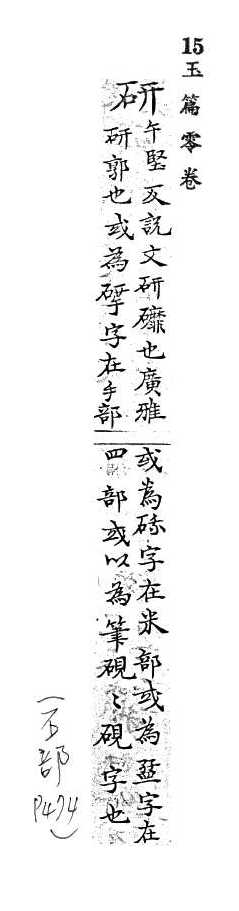 15 玉篇零卷
研 午堅反說文研䃺也廣雅
研郭也或為揅字在手部
或為字在米部或為字在
四部或以為筆硯〻硯字也
(石部
P474)